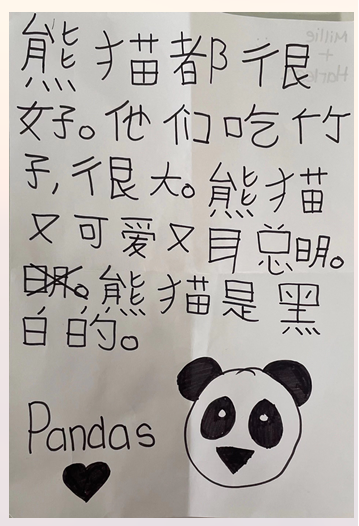 熊猫都很
好。他们吃竹
子,很大。熊猫
又可爱又耳总明。
明。熊猫是黑
白的。
Pandas
Millie
+